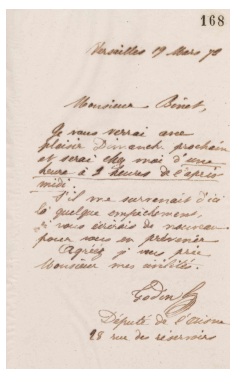 168
Versailles 17 Mars 73
Monsieur Binet,
Je vous verrai avec
plaisir Dimanche prochain
et serai chez moi d'une
heure à 2 heures de l'après
midi.
S'il me survenait d'ici
là quelque empêchement,
je vous écrirais de nouveau
pour vous en prévenir
Agréez je vous prie
Monsieur mes civilités.
Godin
Député de l'Aisne
28 rue des réservoirs